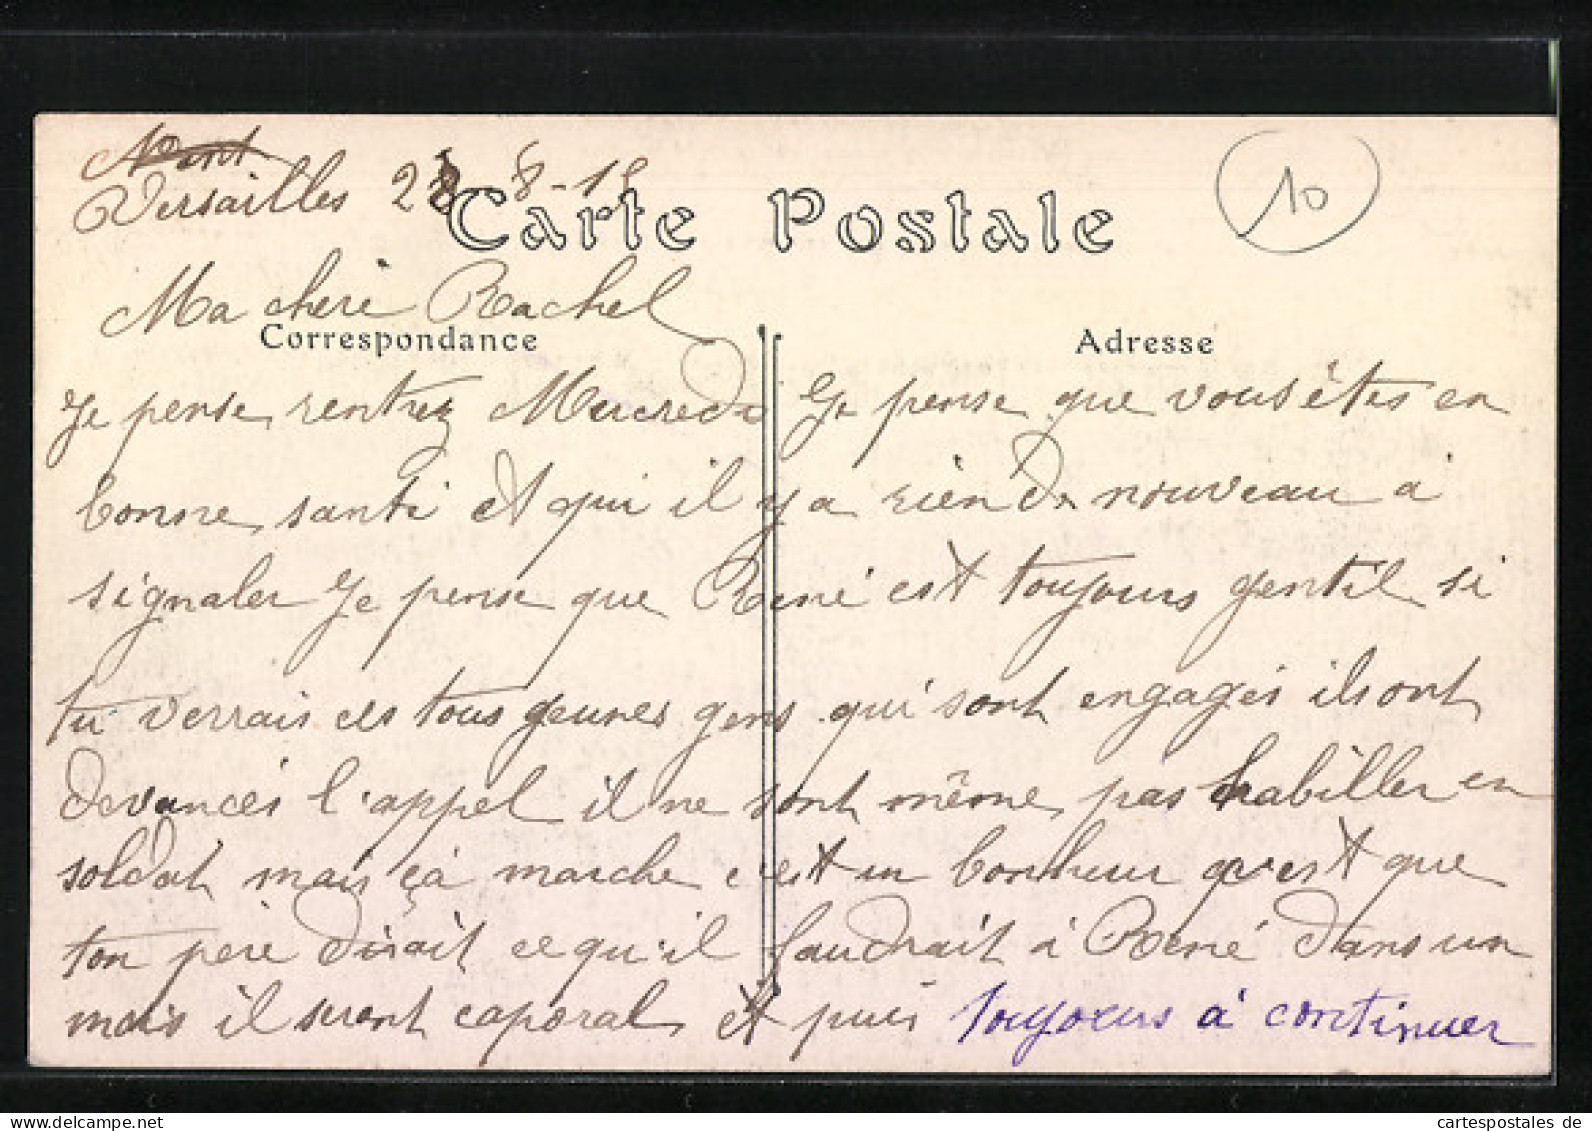 Versailles 28 8-15
Carte Postale
10
Ma chere Rachel
Correspondance
Adresse
Je pense rentrez Mercredi Je pense que vous êtes en
bonne santé et qui il y a rien de nouveau à
signaler Je pense que René est toujours gentil si
tu verrais les tous jeunes gens qui sont engagés ils ont
devancés l'appel il ne sont même pas habiller en
soldat mais çà marche c'est un bonheur qu'est que
ton père dirait ce qu'il faudrait à René dans un
mois il serent caporal et puis toujours à continuer
cartespostales de